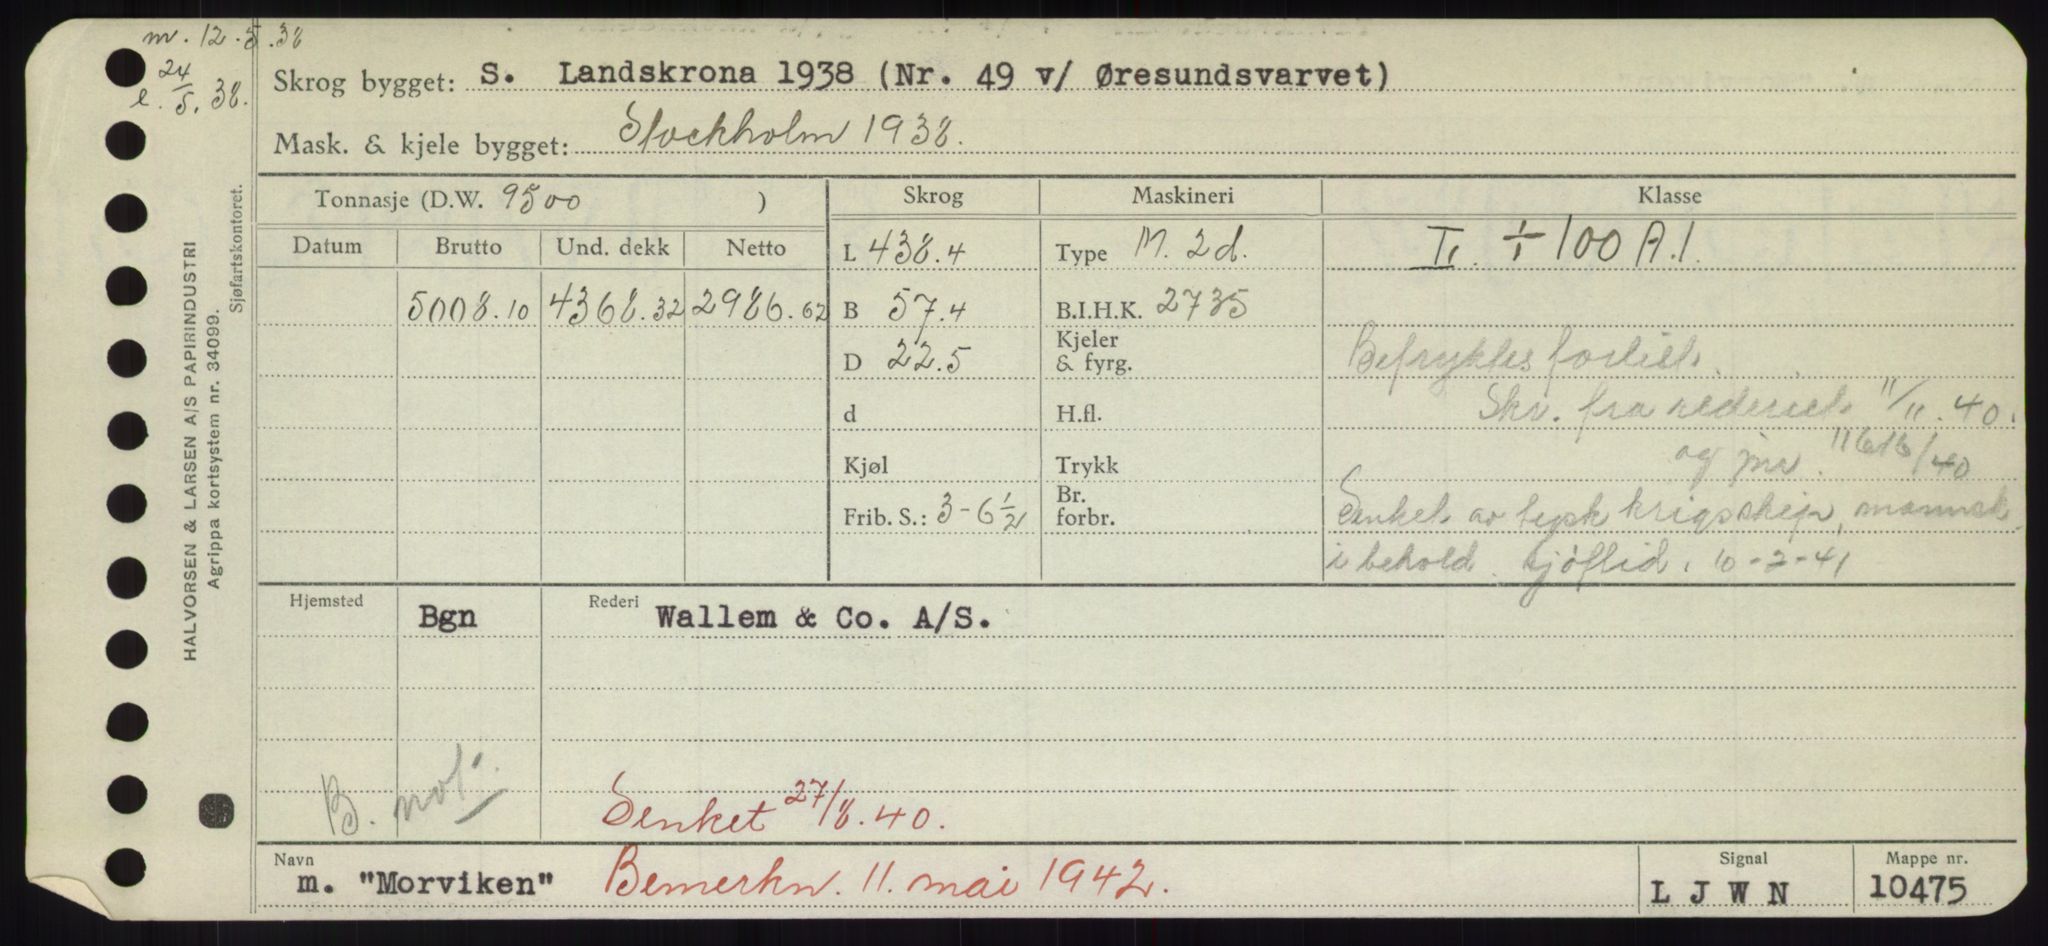 m. 12.5.38
e. 24/5. 38.
Skrog bygget: S. Landskrona 1938 (Nr. 49 v/ Øresundsvarvet)
Mask. & kjele bygget: Stockholm 1938.
Tonnasje (D.W. 9500 )
Skrog
Maskineri
Klasse
Datum
Brutto
Und. dekk
Netto
L 438.4
Type M. 2d.
I. ÷ 100 A.1.
5008.10
4368.32
2986.62
B 57.4
B.I.H.K. 2735
D 22.5
Kjeler
& fyrg.
Befryktes forlist.
d
H.fl.
Skr. fra rederiet 11/11.40.
Kjøl
Trykk
og jnr. 11616/40
Frib. S.: 3-6½
Br.
forbr.
Senket av tysk krigsskip, mannsk.
i behold. sjøftid. 10-2-41
Hjemsted
Bgn
Rederi
Wallem & Co. A/S.
B. not.
Senket 27/8.40.
Navn
m. "Morviken"
Bemerkn. 11. mai 1942.
Signal
L J W N
Mappe nr.
10475
HALVORSEN & LARSEN A/S PAPIRINDUSTRI
Agrippa kortsystem nr. 34099.
Sjøfartskontoret.